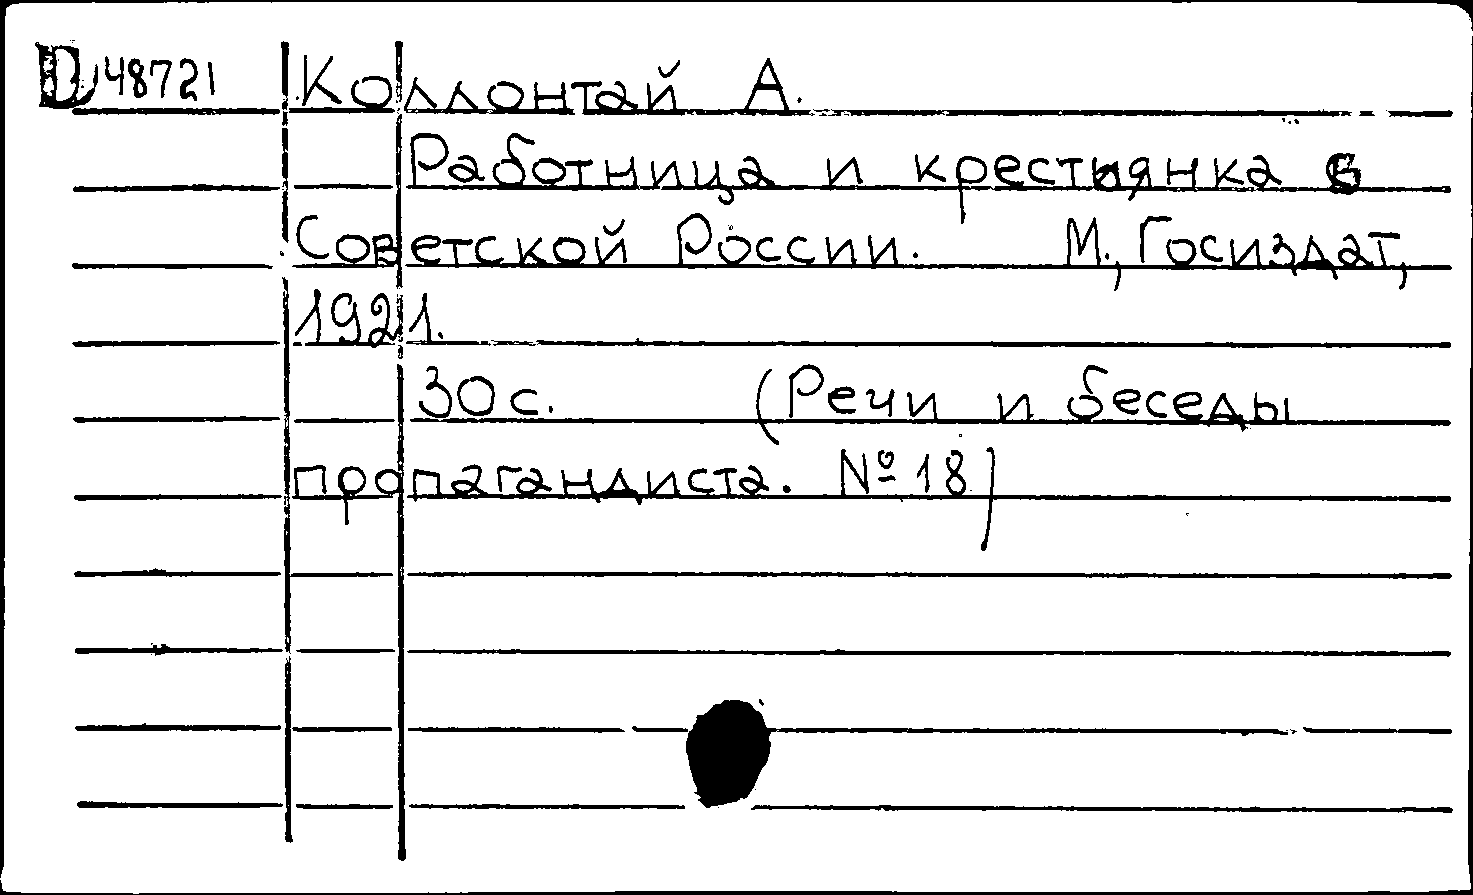 D 48721 Коллонтай А.
Работница и крестьянка в
Советской России. М., Госиздат,
1921.
30 с. (Речи и беседы
пропагандиста. № 18)